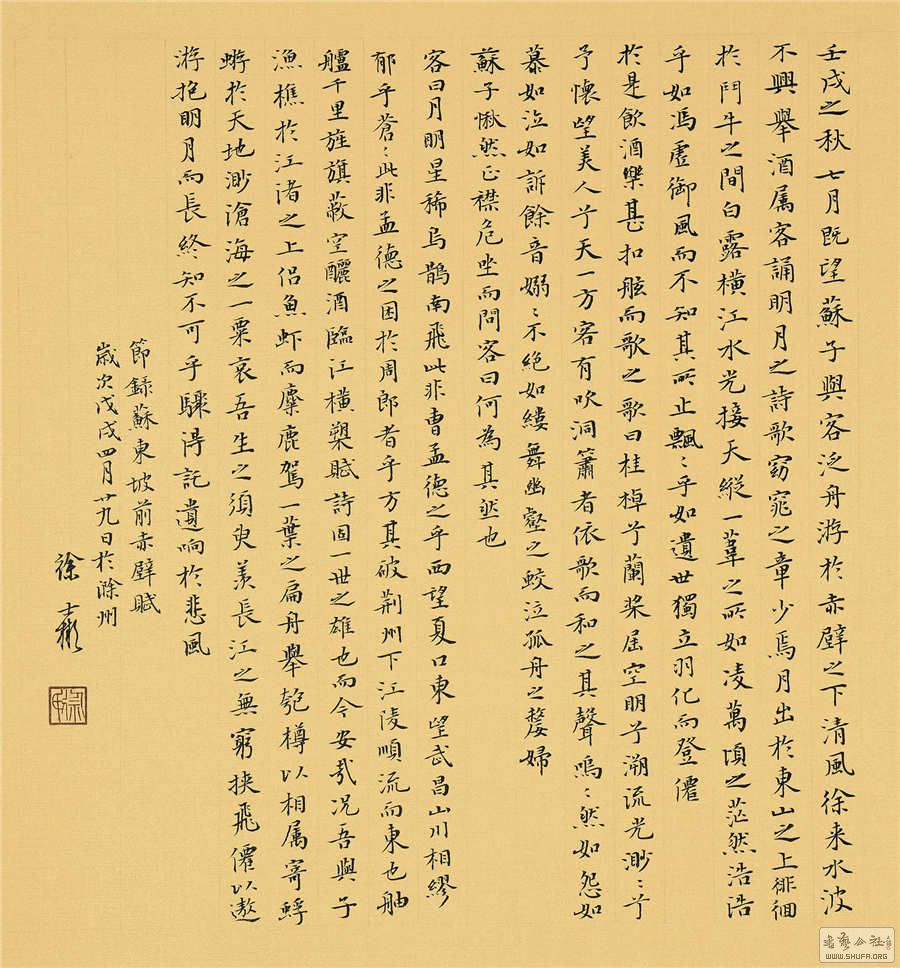 壬戌之秋七月既望蘇子與客泛舟游於赤壁之下清風徐来水波
不興舉酒属客誦明月之詩歌窈窕之章少焉月出於東山之上徘徊
於鬥牛之間白露横江水光接天縱一葦之所如凌萬頃之茫然浩浩
乎如馮虚御風而不知其所止飄〻乎如遺世獨立羽化而登僊
於是飲酒樂甚扣舷而歌之歌曰桂棹兮蘭桨屆空明兮溯流光渺〻兮
予懷望美人兮天一方客有吹洞簫者依歌而和之其聲嗚〻然如怨如
慕如泣如訴餘音嫋〻不绝如縷舞幽壑之蛟泣孤舟之嫠婦
蘇子愀然正襟危坐而問客曰何為其然也
客曰月明星稀烏鹊南飛此非曹孟德之乎西望夏口東望武昌山川相繆
郁乎蒼〻此非孟德之困於周郎者乎方其破荆州下江陵順流而東也舳
艫千里旌旗蔽空釃酒臨江横槊賦詩固一世之雄也而今安哉況吾與子
漁樵於江渚之上侣魚虾而麋鹿駕一葉之扁舟舉匏樽以相属寄蜉
蝣於天地渺滄海之一粟哀吾生之須臾羡長江之無窮挟飛僊以遨
游抱明月而長終知不可乎驟得託遺响於悲風
節録蘇東坡前赤壁賦
歲次戊戌四月廿九日於滁州
徐士彬
書藝公社
WWW.SHUFA.ORG